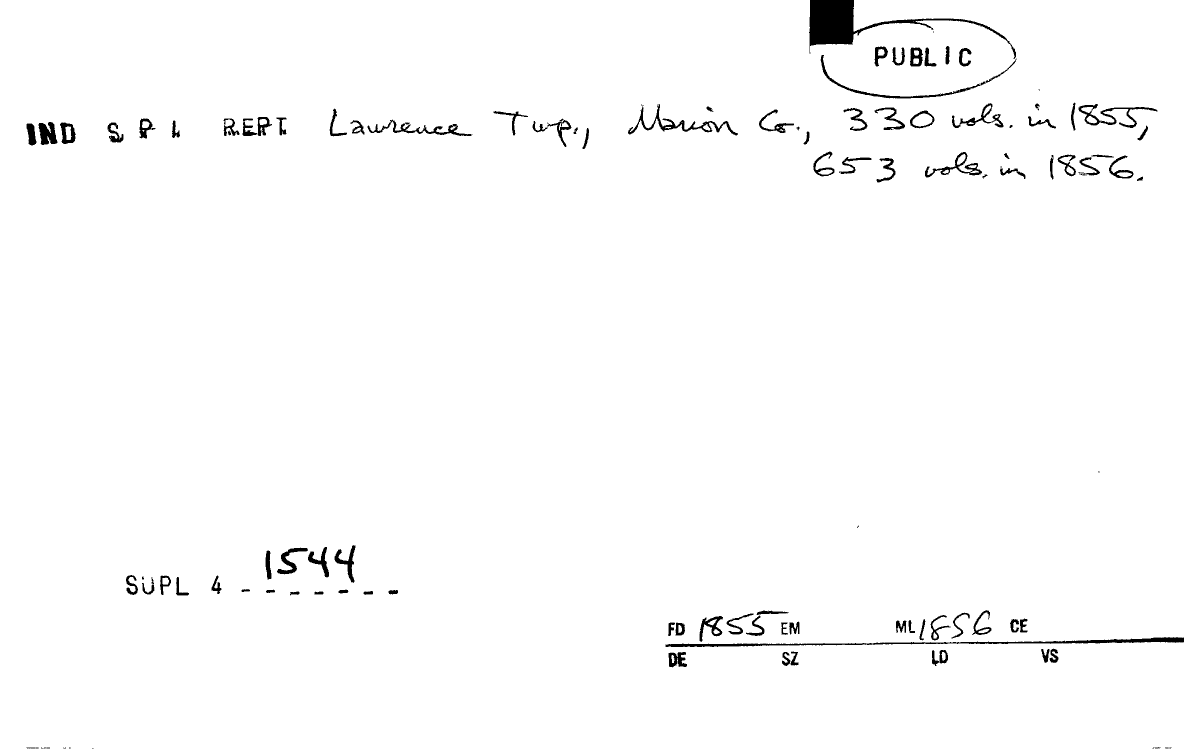 PUBLIC
IND S P I REPT Lawrence Twp., Marion Co., 330 vols. in 1855,
653 vols. in 1856.
1544
SUPL 4 - - - - - - -
FD 1855 EM ML 1856 CE
DE SZ LD VS